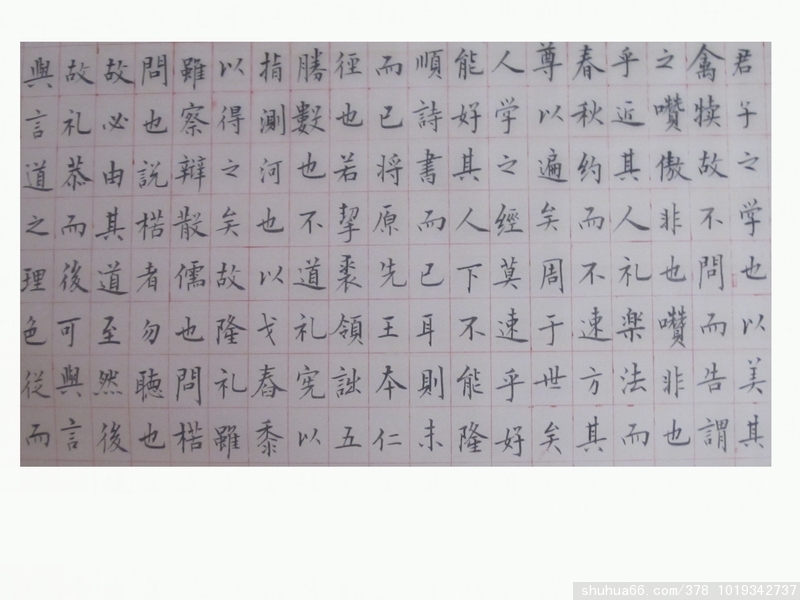 君子之学也以美其
禽犊故不問而告謂
之囋傲非也囋非也
乎近其人礼楽法而
春秋約而不速方其
尊以遍矣周于世矣
人学之經莫速乎好
能好其人下不能隆
順詩書而已耳則未
而已将原先王本仁
徑也若挈裘領詘五
勝數也不道礼宪以
指測河也以戈舂黍
以得之矣故隆礼雖
雖察辯散儒也問楛
問也説楛者勿聴也
故必由其道至然後
故礼恭而後可與言
與言道之理色從而
shuhua66.com/378 1019342737